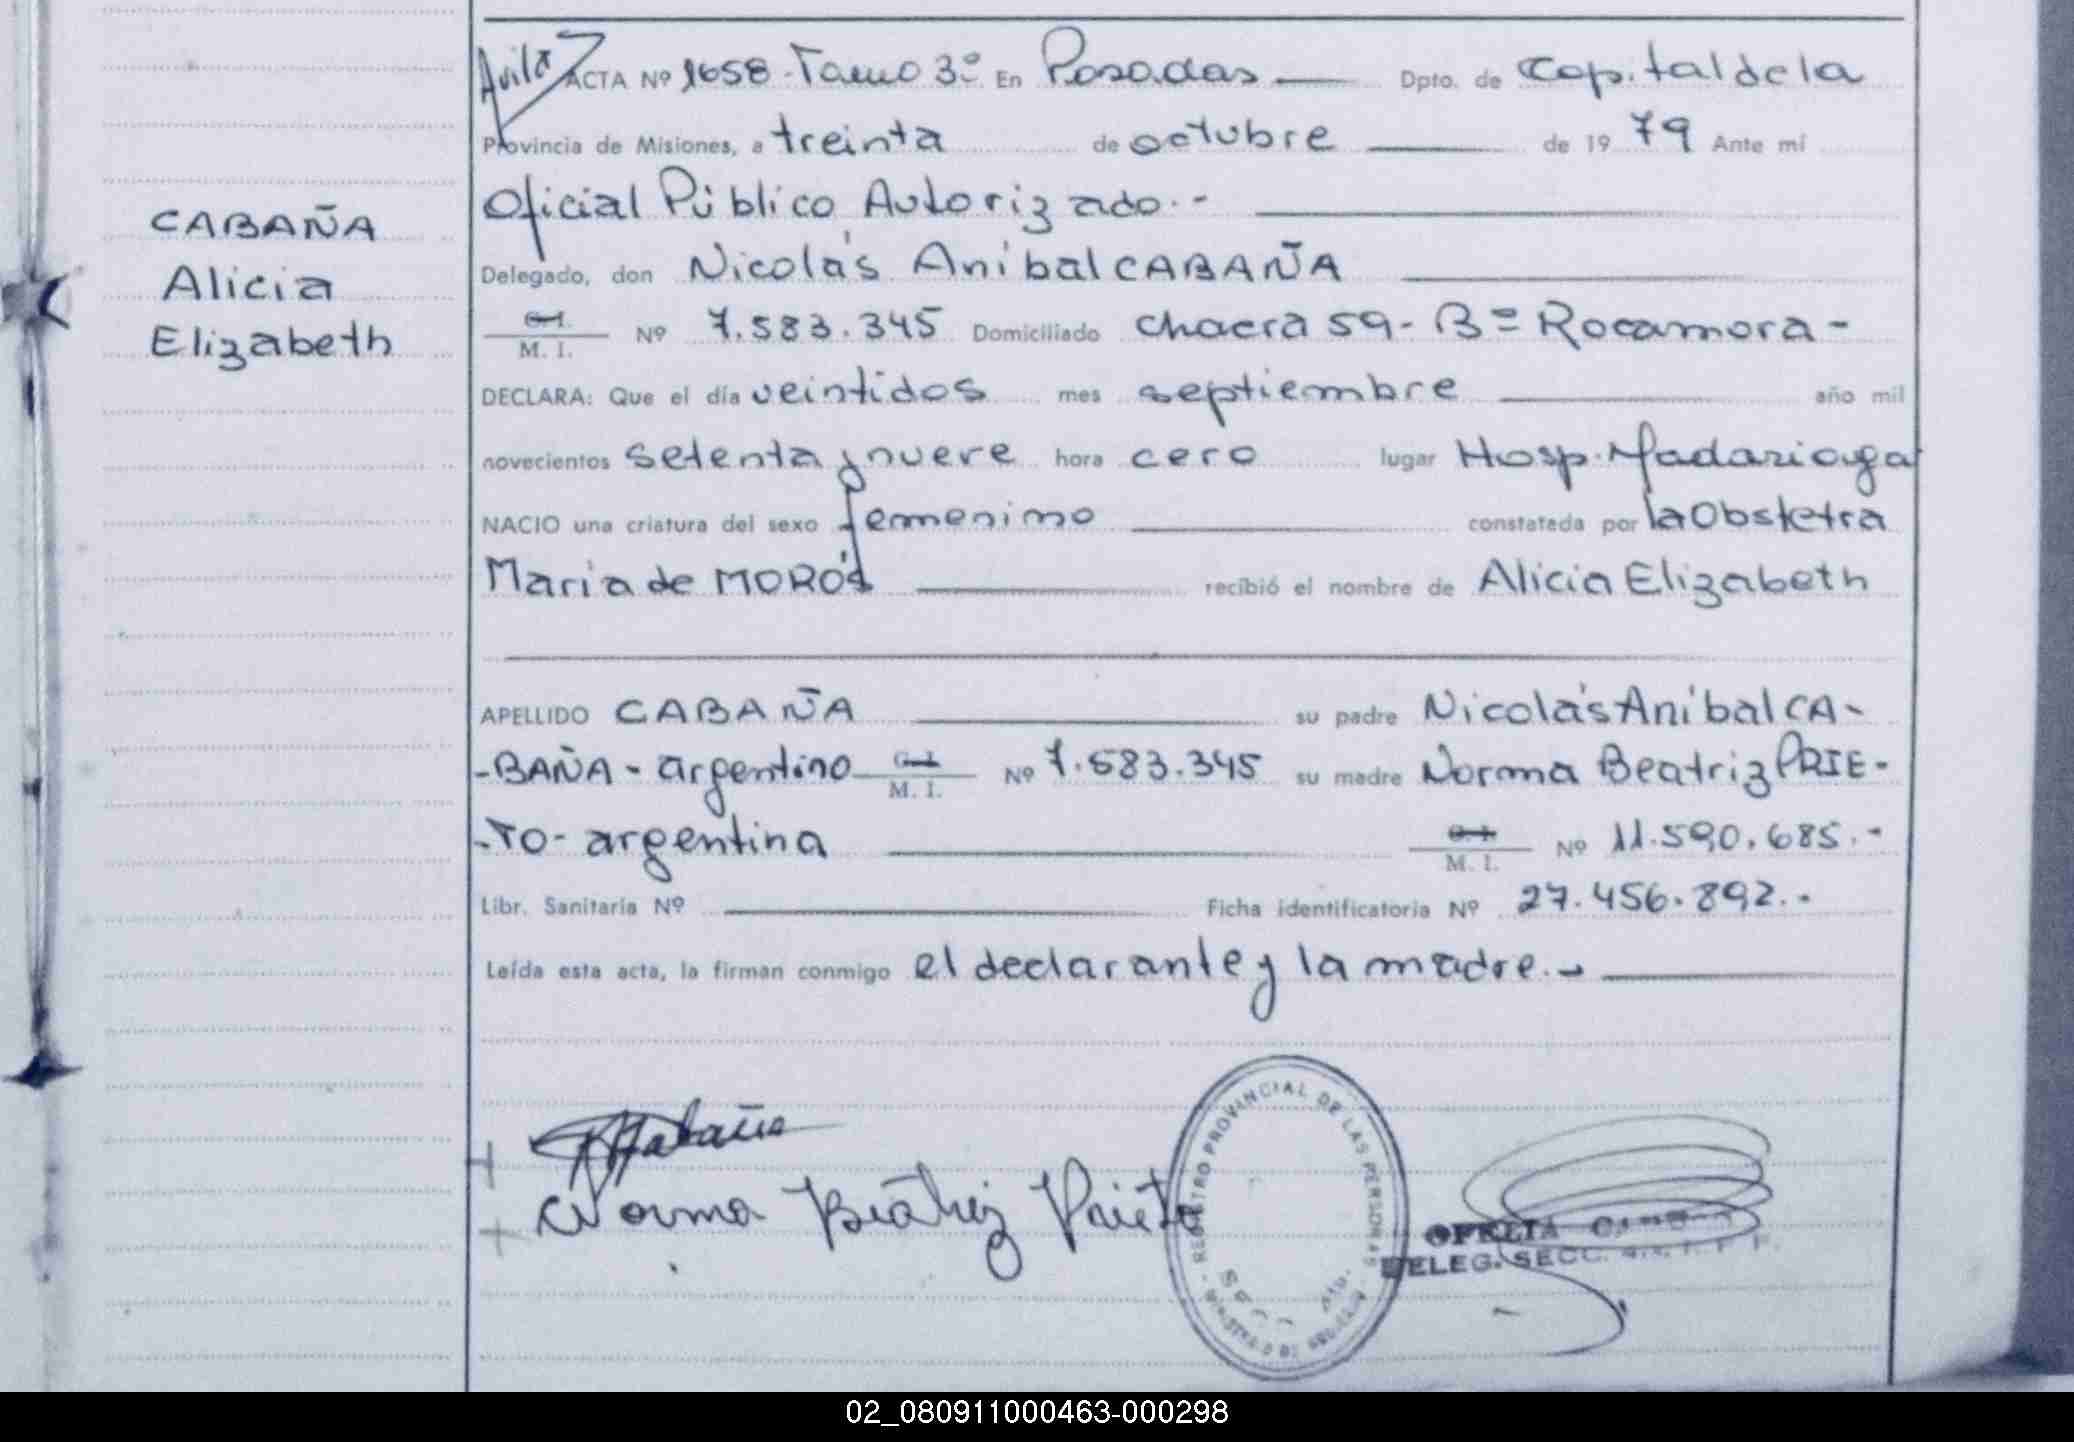 Avila ACTA Nº 1658 - Tomo 3º En Posadas Dpto. de Capital de la
Provincia de Misiones, a treinta de octubre de 1979 Ante mí
Oficial Público Autorizado.-
CABAÑA
Alicia
Elizabeth
Delegado, don Nicolás Aníbal CABAÑA
C. I. M. I. Nº 7.583.345 Domiciliado chacra 59 - Bº Rocamora -
DECLARA: Que el día veintidos mes septiembre año mil
novecientos setenta y nueve hora cero lugar Hosp. Madariaga
NACIO una criatura del sexo femenino constatada por la Obstetra
María de MOROS recibió el nombre de Alicia Elizabeth
APELLIDO CABAÑA su padre Nicolás Aníbal CA-
-BAÑA - argentino C. I. M. I. Nº 7.583.345 su madre Norma Beatriz PRIE-
-TO - argentina C. I. M. I. Nº 11.590.685.-
Libr. Sanitaria Nº Ficha identificatoria Nº 27.456.892.-
Leída esta acta, la firman conmigo el declarante y la madre.-
Cabaña
Norma Beatriz Prieto
REGISTRO PROVINCIAL DE LAS PERSONAS
OFELIA
DELEG. SECC.
02_080911000463-000298